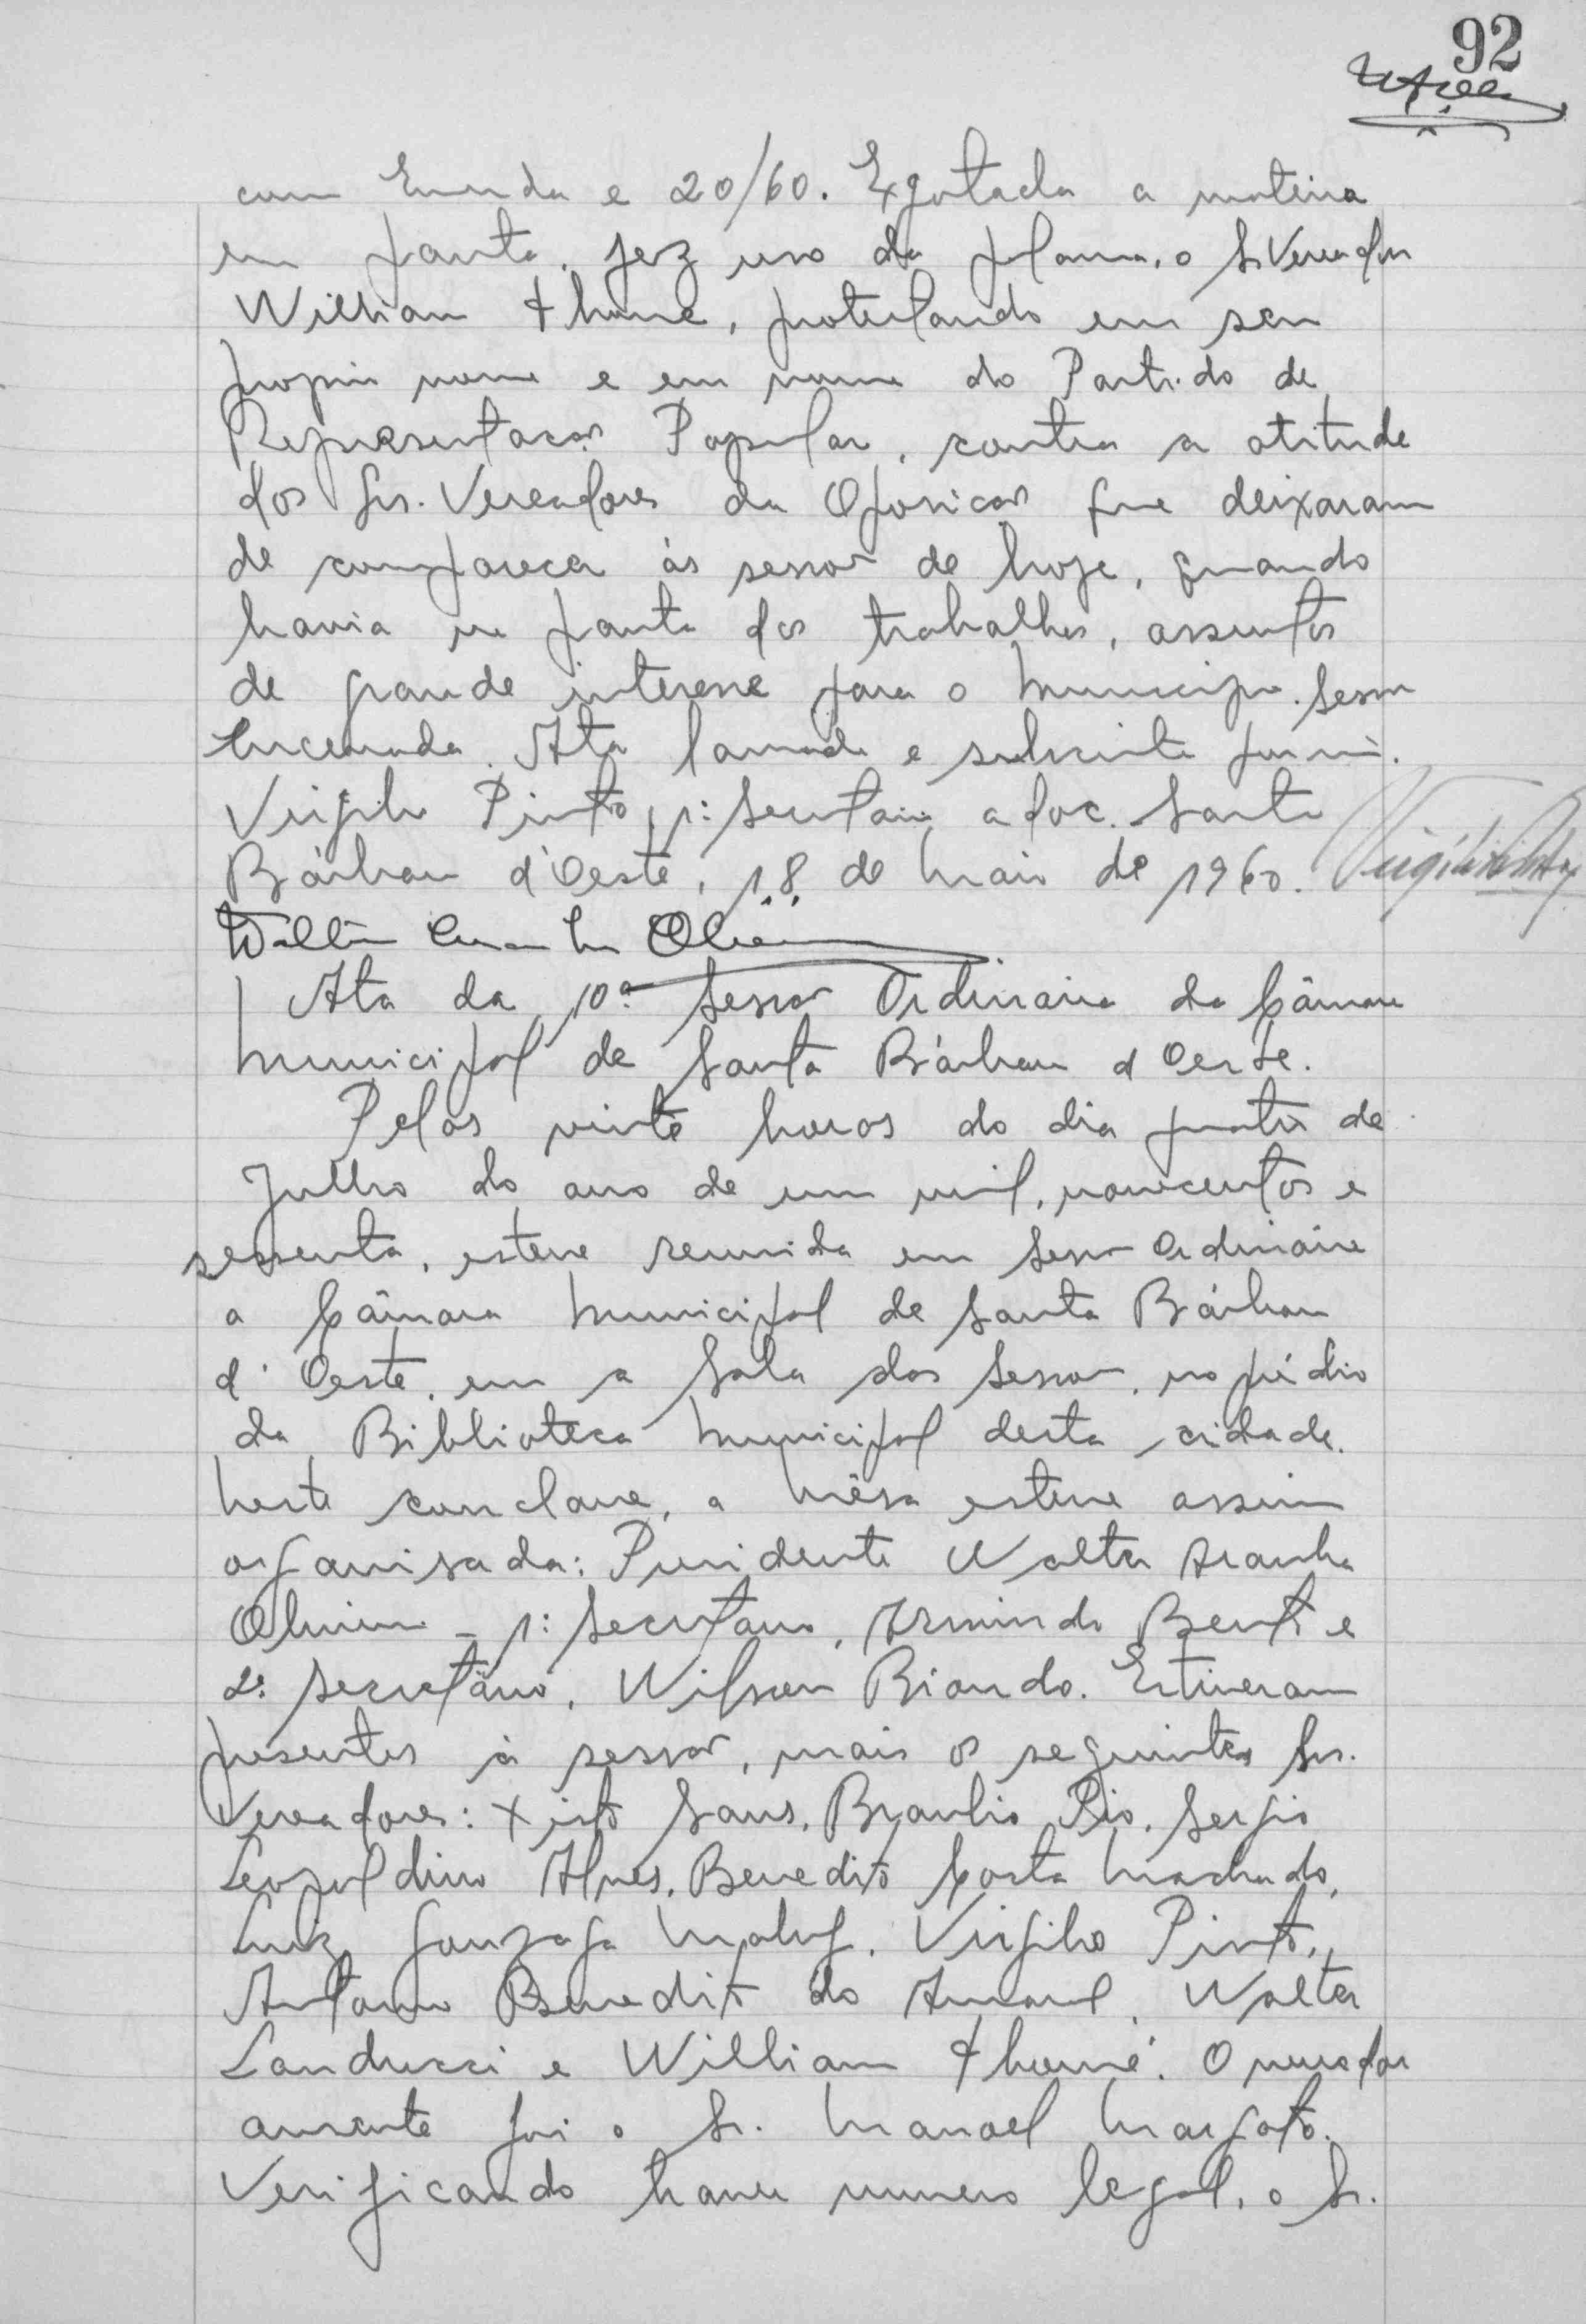 92
com Emenda e 20/60. Exgotada a materia
em pauta, fez uso da palavra, o Sr. Vereador
William Thomé, protestando em seu
proprio nome e em nome do Partido de
Representação Popular, contra a atitude
dos Srs. Vereadores da Oposição que deixaram
de comparecer às sessão de hoje, quando
havia na pauta dos trabalhos, assuntos
de grande interesse para o Municipio. Sessão
encerrada. Ata lavrada e subscrita por mim.
Virgilio Pinto, 1º Secretario adoc. Santa
Bárbara d'Oeste, 18 de Maio de 1960. Virgilio Pinto
Ata da 10ª Sessão Ordinaria da Câmara
Municipal de Santa Bárbara d'Oeste.
Pelas vinte horas do dia quatro de
Julho do ano de um mil, novecentos e
sessenta, esteve reunida em Sessão Ordinária
a Câmara Municipal de Santa Bárbara
d'Oeste, em a Sala das Sessão, no prédio
da Biblioteca Municipal desta cidade.
Neste conclave, a Mêsa esteve assim
organisada: Presidente Walter Aranha
Oliveira - 1º Secretario, Armindo Benti e
2º Secretário, Wilson Biondo. Estiveram
presentes à sessão, mais os seguintes Srs.
Vereadores: Xisto Sans, Braulio Pio, Sergio
Leopoldino Alves, Benedito Costa Machado,
Luiz Gonzaga Maluf, Virgilio Pinto,
Antonio Benedito do Amaral, Walter
Landucci e William Thomé. O vereador
ausente foi o Sr. Manoel Margato.
Verificando haver numero legal, o Sr.